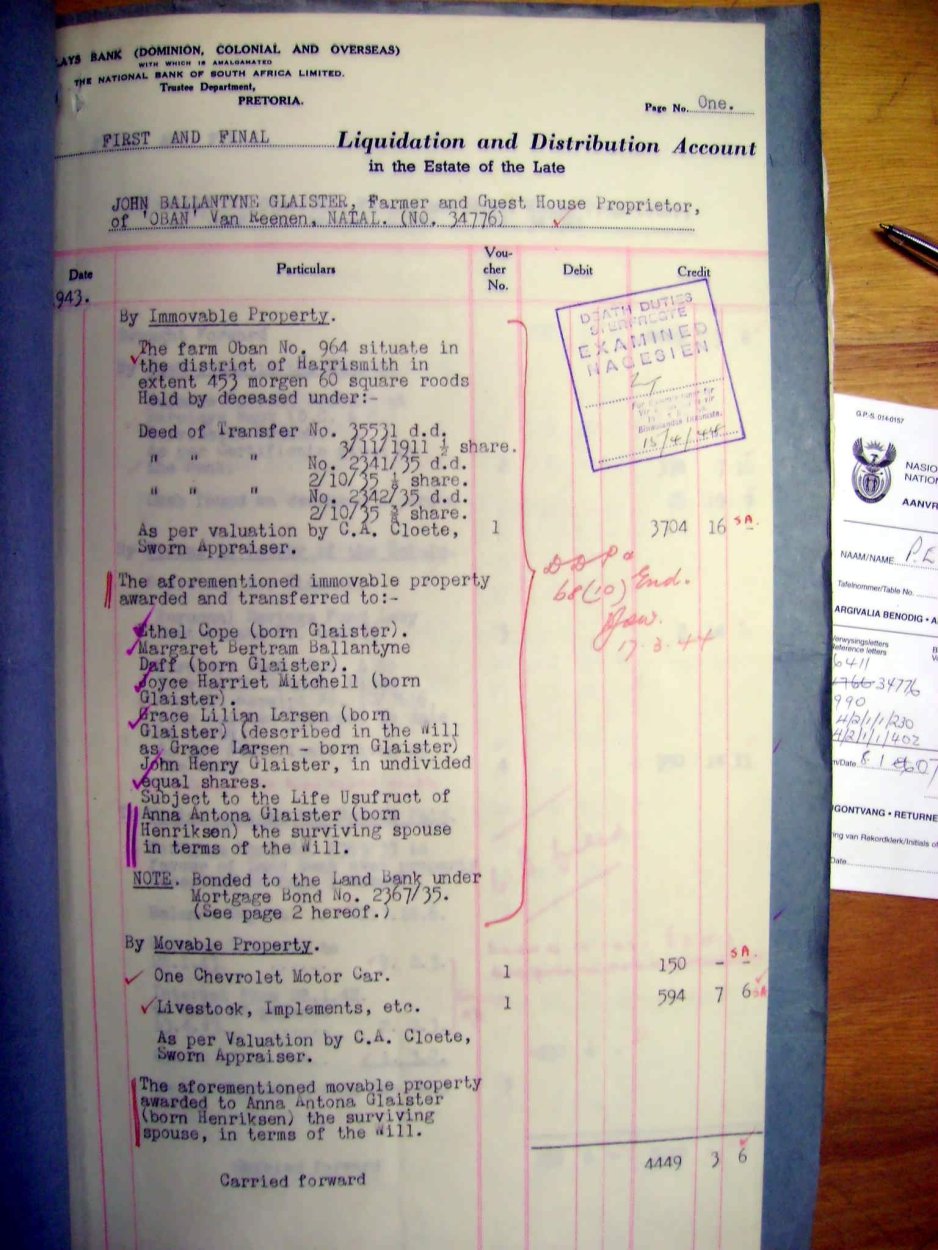 AYS BANK (DOMINION, COLONIAL AND OVERSEAS)
WITH WHICH IS AMALGAMATED
THE NATIONAL BANK OF SOUTH AFRICA LIMITED.
Trustee Department,
PRETORIA.
Page No. One.
FIRST AND FINAL Liquidation and Distribution Account
in the Estate of the Late
JOHN BALLANTYNE GLAISTER, Farmer and Guest House Proprietor,
of 'OBAN' Van Reenen, NATAL. (NO. 34776)
Date Particulars Vou-cher No. Debit Credit
943.
By Immovable Property.
The farm Oban No. 964 situate in
the district of Harrismith in
extent 453 morgen 60 square roods
Held by deceased under:-
Deed of Transfer No. 35531 d.d.
3/11/1911 ½ share.
" " " No. 2341/35 d.d.
2/10/35 share.
" " " No. 2342/35 d.d.
2/10/35 share.
As per valuation by C.A. Cloete, 1 3704 16 - SA.
Sworn Appraiser.
The aforementioned immovable property
awarded and transferred to:-
Ethel Cope (born Glaister).
Margaret Bertram Ballantyne
Daff (born Glaister).
Joyce Harriet Mitchell (born
Glaister).
Grace Lilian Larsen (born
Glaister) (described in the Will
as Grace Larsen - born Glaister)
John Henry Glaister, in undivided
equal shares.
Subject to the Life Usufruct of
Anna Antona Glaister (born
Henriksen) the surviving spouse
in terms of the Will.
NOTE. Bonded to the Land Bank under
Mortgage Bond No. 2367/35.
(See page 2 hereof.)
By Movable Property.
One Chevrolet Motor Car. 1 150 - - SA.
Livestock, Implements, etc. 1 594 7 6 SA
As per Valuation by C.A. Cloete,
Sworn Appraiser.
The aforementioned movable property
awarded to Anna Antona Glaister
(born Henriksen) the surviving
spouse, in terms of the Will.
4449 3 6
Carried forward
DEATH DUTIES
EXAMINED
NAGESIEN
15/4/44
68(10) End.
17.3.44
G.P.-S. 014-0157
NASIO
NATION
AANVR
NAAM/NAME P.E
Tafelnommer/Table No.
ARGIVALIA BENODIG • A
erwysingsletters
eference letters
6411
34776
990
4/2/1/1/230
4/2/1/1/402
m/Date 8.1
GONTVANG • RETURNE
ing van Rekordklerk/Initials of
Date